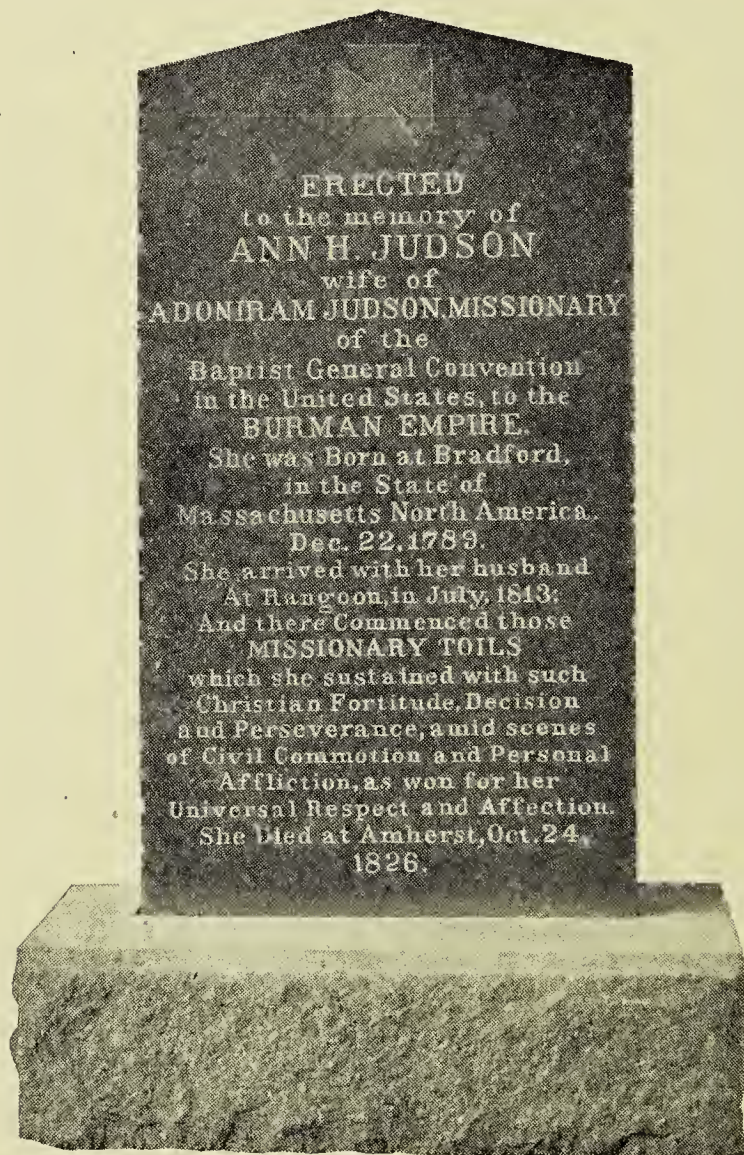 ERECTED
to the memory of
ANN H. JUDSON
wife of
ADONIRAM JUDSON, MISSIONARY
of the
Baptist General Convention
in the United States, to the
BURMAN EMPIRE.
She was Born at Bradford,
in the State of
Massachusetts North America.
Dec. 22, 1789.
She arrived with her husband
At Rangoon, in July, 1813:
And there Commenced those
MISSIONARY TOILS
which she sustained with such
Christian Fortitude, Decision
and Perseverance, amid scenes
of Civil Commotion and Personal
Affliction, as won for her
Universal Respect and Affection.
She Died at Amherst, Oct. 24,
1826.